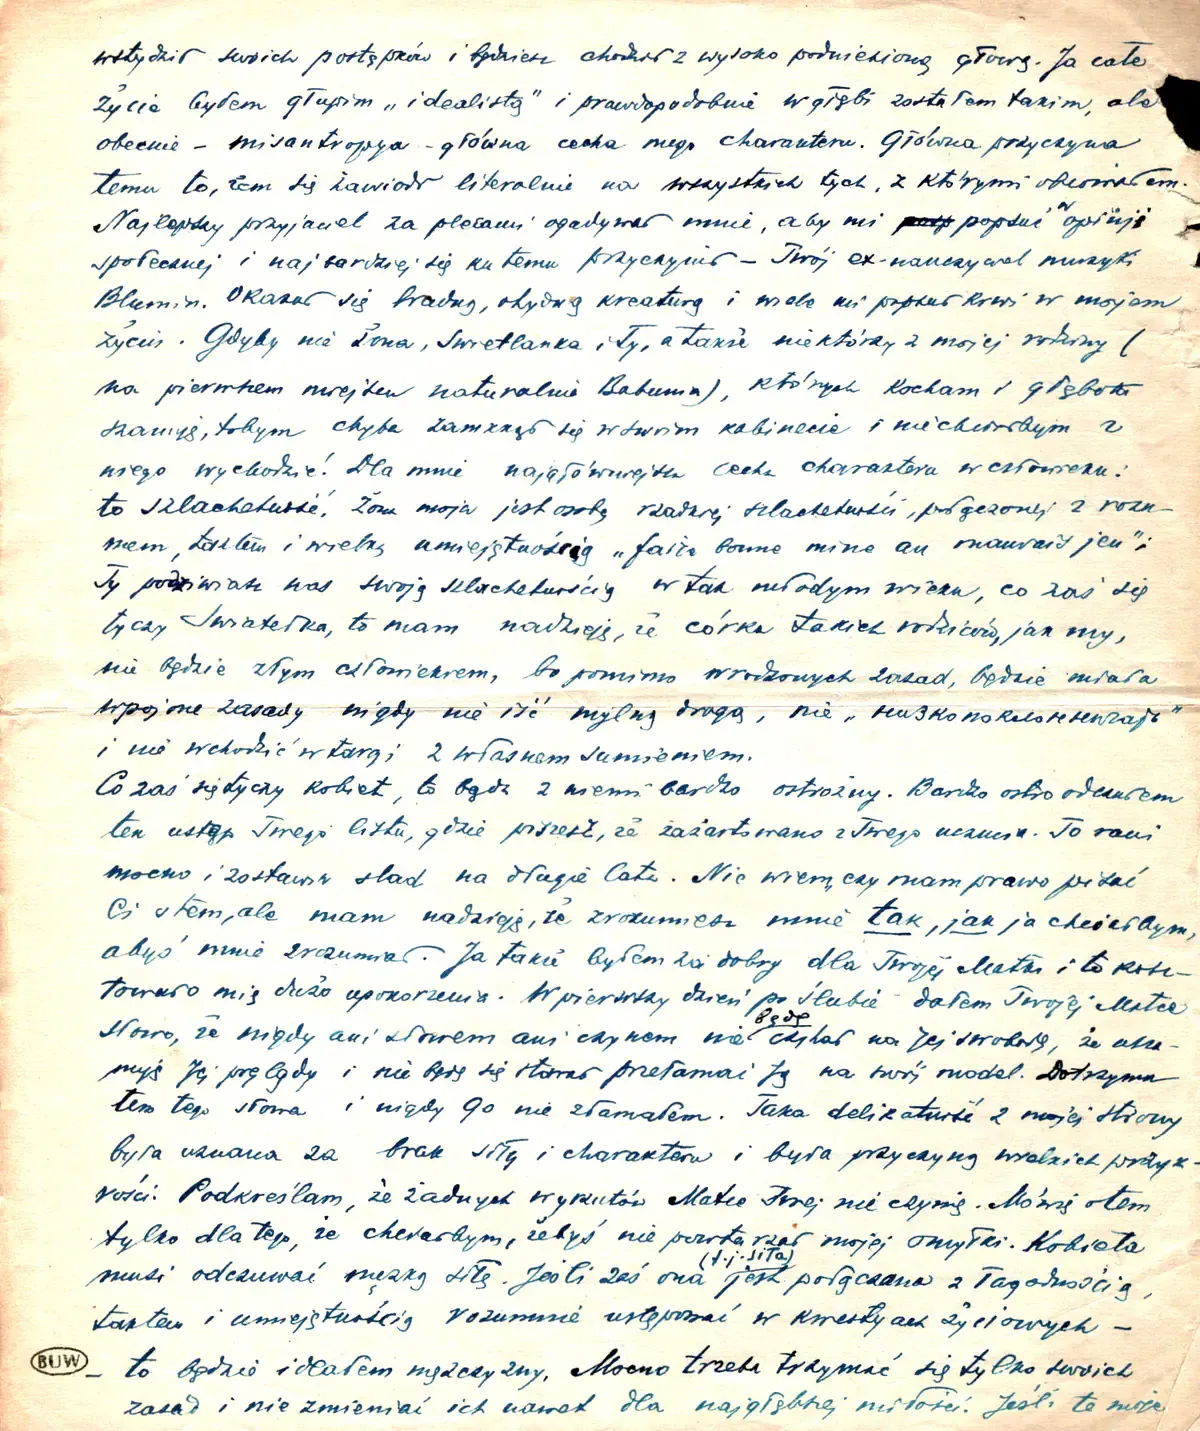 wstydził swoich postępków i będziesz chodził z wysoko podniesioną głową. Ja całe
życie byłem głupim „idealistą” i prawdopodobnie w głębi zostałem takim, ale
obecnie – misantropja – główna cecha mego charakteru. Główna przyczyna
temu to, żem się zawiódł literalnie na wszystkich tych, z którymi obcowałem.
Najlepszy przyjaciel za plecami ogadywał mnie, aby mi popsuć w opinji
społecznej i najbardziej się ku temu przyczynił – Twój ex-nauczyciel muzyki
Blumin. Okazał się brudną, ohydną kreaturą i wiele mi popsuł krwi w mojem
życiu. Gdyby nie żona, Swietlanka i Ty, a także niektórzy z mojej rodziny (
na pierwszem miejscu naturalnie Babunia), których kocham i głęboko
szanuję, tobym chyba zamknął się w swoim kabinecie i niechciałbym z
niego wychodzić! Dla mnie najgłówniejsza cecha charakteru w człowieku:
to szlachetność. Żona moja jest osobą rzadkiej szlachetności, połączonej z rozu-
mem, taktem i wielką umiejętnością „faire bonne mine au mauvais jeu”;
Ty podziwiasz nas swoją szlachetnością w tak młodym wieku, co zaś się
tyczy Swiatełka, to mam nadzieję, że córka takich rodziców, jak my,
nie będzie złym człowiekiem, bo pomimo wrodzonych zasad, będzie miała
wpojone zasady nigdy nie iść mylną drogą, nie „низкопоклонничать”
i nie wchodzić w targi z własnem sumieniem.
Co zaś się tyczy kobiet, to bądź z niemi bardzo ostrożny. Bardzo ostro odczułem
ten ustęp Twego listu, gdzie piszesz, że zażartowano z Twego uczucia. To rani
mocno i zostawia ślad na długie lata. Nie wiem, czy mam prawo pisać
Ci o tem, ale mam nadzieję, że zrozumiesz mnie tak, jak ja chciałbym,
abyś mnie zrozumiał. Ja także byłem za dobry dla Twojej Matki i to kosz-
towało mię dużo upokorzenia. W pierwszy dzień po ślubie dałem Twojej Matce
słowo, że nigdy ani słowem ani czynem nie będę czyhał na Jej swobodę, że usza-
nuję Jej poglądy i nie będę się starał przełamać Ją na swój model. Dotrzyma-
łem tego słowa i nigdy Go nie złamałem. Taka delikatność z mojej strony
była uznana za brak siły i charakteru i była przyczyną wielkich przyk-
rości. Podkreślam, że żadnych wyrzutów Matce Twej nie czynię. Mówię o tem
tylko dlatego, że chciałbym, żebyś nie powtarzał mojej omyłki. Kobieta
musi odczuwać męzką siłę. Jeśli zaś ona (t.j. siła) jest połączona z łagodnością,
taktem i umiejętnością rozumnie ustępować w kwestyach życiowych –
– to będzie ideałem mężczyzny. Mocno trzeba trzymać się tylko swoich
zasad i nie zmieniać ich nawet dla najgłębszej miłości. Jeśli te moje
BUW